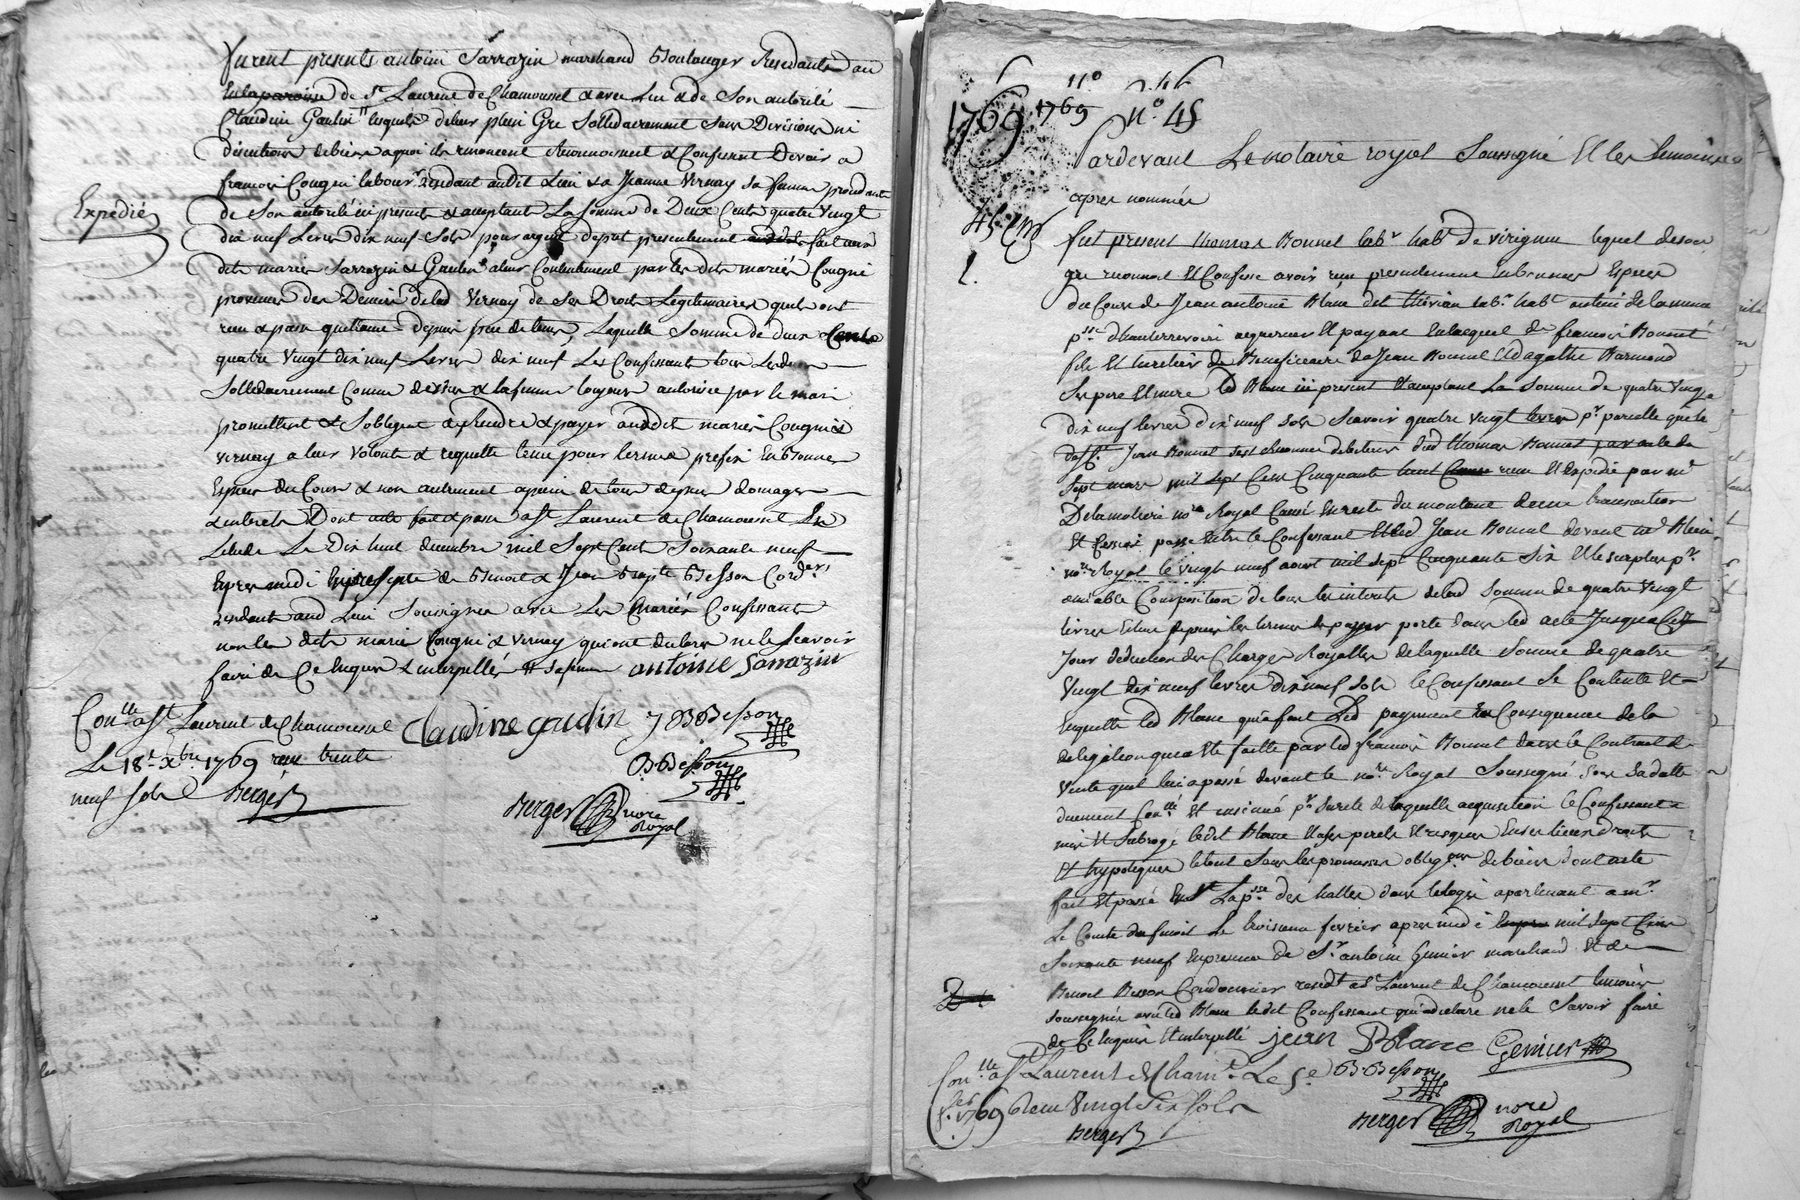 furent presents antoine Sarrazin marchand Boulanger Residant au
En la paroisse de St Laurent de Chamousset & avec Lui & de Son autorité
Claudine Gaudin lesquels de leur plein Gré Sollidairement Sans Division ni
discution de biens a quoi ils renoncent Reconnoissent & Confessent Devoir a
francois Cougni labour residant audit Lieu & a Jeanne Vernay sa femme procedante
Expedié
de Son autorité ici presents & acceptant La Somme de Deux Cents quatre Vingt
dix neuf Livres dix neuf Sols pour argent de prêt presentement fait aux
dits mariés Sarrazin & Gaudin a leur Contentement par les dits mariés Cougni
provenus des Deniers de lad Vernay de Ses Droits Legitimaires quils ont
reçu & passé quittance depuis peu de tems, Laquelle Somme de deux Cents
quatre Vingt dix neuf Livres dix neuf Sols Les Confessants tous Deux
Sollidairement Comme dessus & la femme toujours autorisée par le mari
promettent & Sobligent de rendre & payer auxdits mariés Cougni &
Vernay a leur Volonté & requette tems pour terme prefix En Bonnes
Especes du Cours & non autrement a peine de tous depens domages
& interets Dont acte fait & passé a St Laurent de Chamousset En
Letude Le Dix huit decembre mil Sept Cent Soixante neuf
apres midi En presence de Benoit & Jean Bapte Besson Cordrs
residants aud Lieu Soussignés avec Les Mariés Confessants
non les dits mariés Cougni & Vernay qui ont declaré ne le Scavoir
faire de Ce Enquis & interpellés antoine Sarrazin
Conllé a St Laurent de Chamousset Claudine gaudin J B Besson
Le 18e Xbre 1769 reçu trente
neuf Sols Berger B Besson
Berger nore
Royal
n°
1769 1769 N° 45
Pardevant Le notaire royal Soussigné Et les temoins
apres nommés
fut present thomas Bonnet labr habt de Virigneu lequel de son
gré reconnoit Et Confesse avoir reçu presentement En bonnes Especes
du Cours de Jean antoine Blanc dit thivian labr habt
psse d'hauterivoire acquereur Et payant En lacquit de francois Bonnet
fils Et heritier de Beneficiaire de Jean Bonnet Et dagathe Barmond
Ses pere Et mere led Blanc ici present & acceptant La Somme de quatre Vingt
dix neuf livres dix neuf sols Scavoir quatre Vingt livres pr pareille que le
defft Jean Bonnet Sest reconnu debiteur dud thomas Bonnet par acte du
Sept mars mil Sept Cent Cinquante reçu Et Expedié par Me
Delamoliere nore Royal Causé En reste du montant dune transaction
Et Cession passée Entre le Confessant Et led Jean Bonnet devant Me Blein
nore Royal le vingt neuf aout mil sept Cinquante Six Et le surplus pr
amiable Composition de tous les interets de lad Somme de quatre Vingt
livres Echus depuis les termes de payer porté dans led acte Jusqua Ce
Jour deduction des Charges Royalles de laquelle Somme de quatre
Vingt dix neuf livres dix neuf sols le Confessant Se Contente Et
Enquitte led Blanc qui a fait Led payement En Consequence de la
delegation qui a Eté faitte par led francois Bonnet dans le Contract de
Vente quil lui a passé devant le nore Royal Soussigné Sous Sa datte
duement Conllé Et insinué pr Sureté de laquelle acquisition le Confessant a
mis Et Subrogé ledit Blanc a ses perils Et risques En Ses lieux droits
Et hypoteques le tout Sous les promesses obligons de biens dont acte
fait Et passé En La psse des halles dans le logis apartenant a mr
Le Comte du fenoil Le troisieme fevrier apres midi mil Sept Cent
Soixante neuf En presence de Sr antoine Genier marchand Et de
Benoit Besson Cordonnier residt a St Laurent de Chamousset temoins
Soussignés avec led Blanc ledit Confessant qui a declaré ne le Savoir faire
de Ce Enquis Et interpellé jean Blanc Genier
Conllé a St Laurent de Chamt Le 5e B. Besson
fer 1769 Reçu Vingt Six Sols
Berger Berger nore
Royal